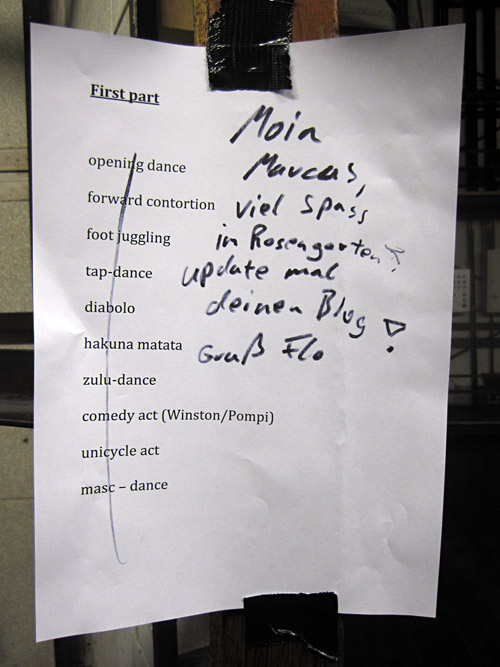 First part
opening dance
forward contortion
foot juggling
tap-dance
diabolo
hakuna matata
zulu-dance
comedy act (Winston/Pompi)
unicycle act
masc – dance
Moin
Marcus,
viel Spass
in Rosengarten!
update mal
deinen Blog!
Gruß Flo